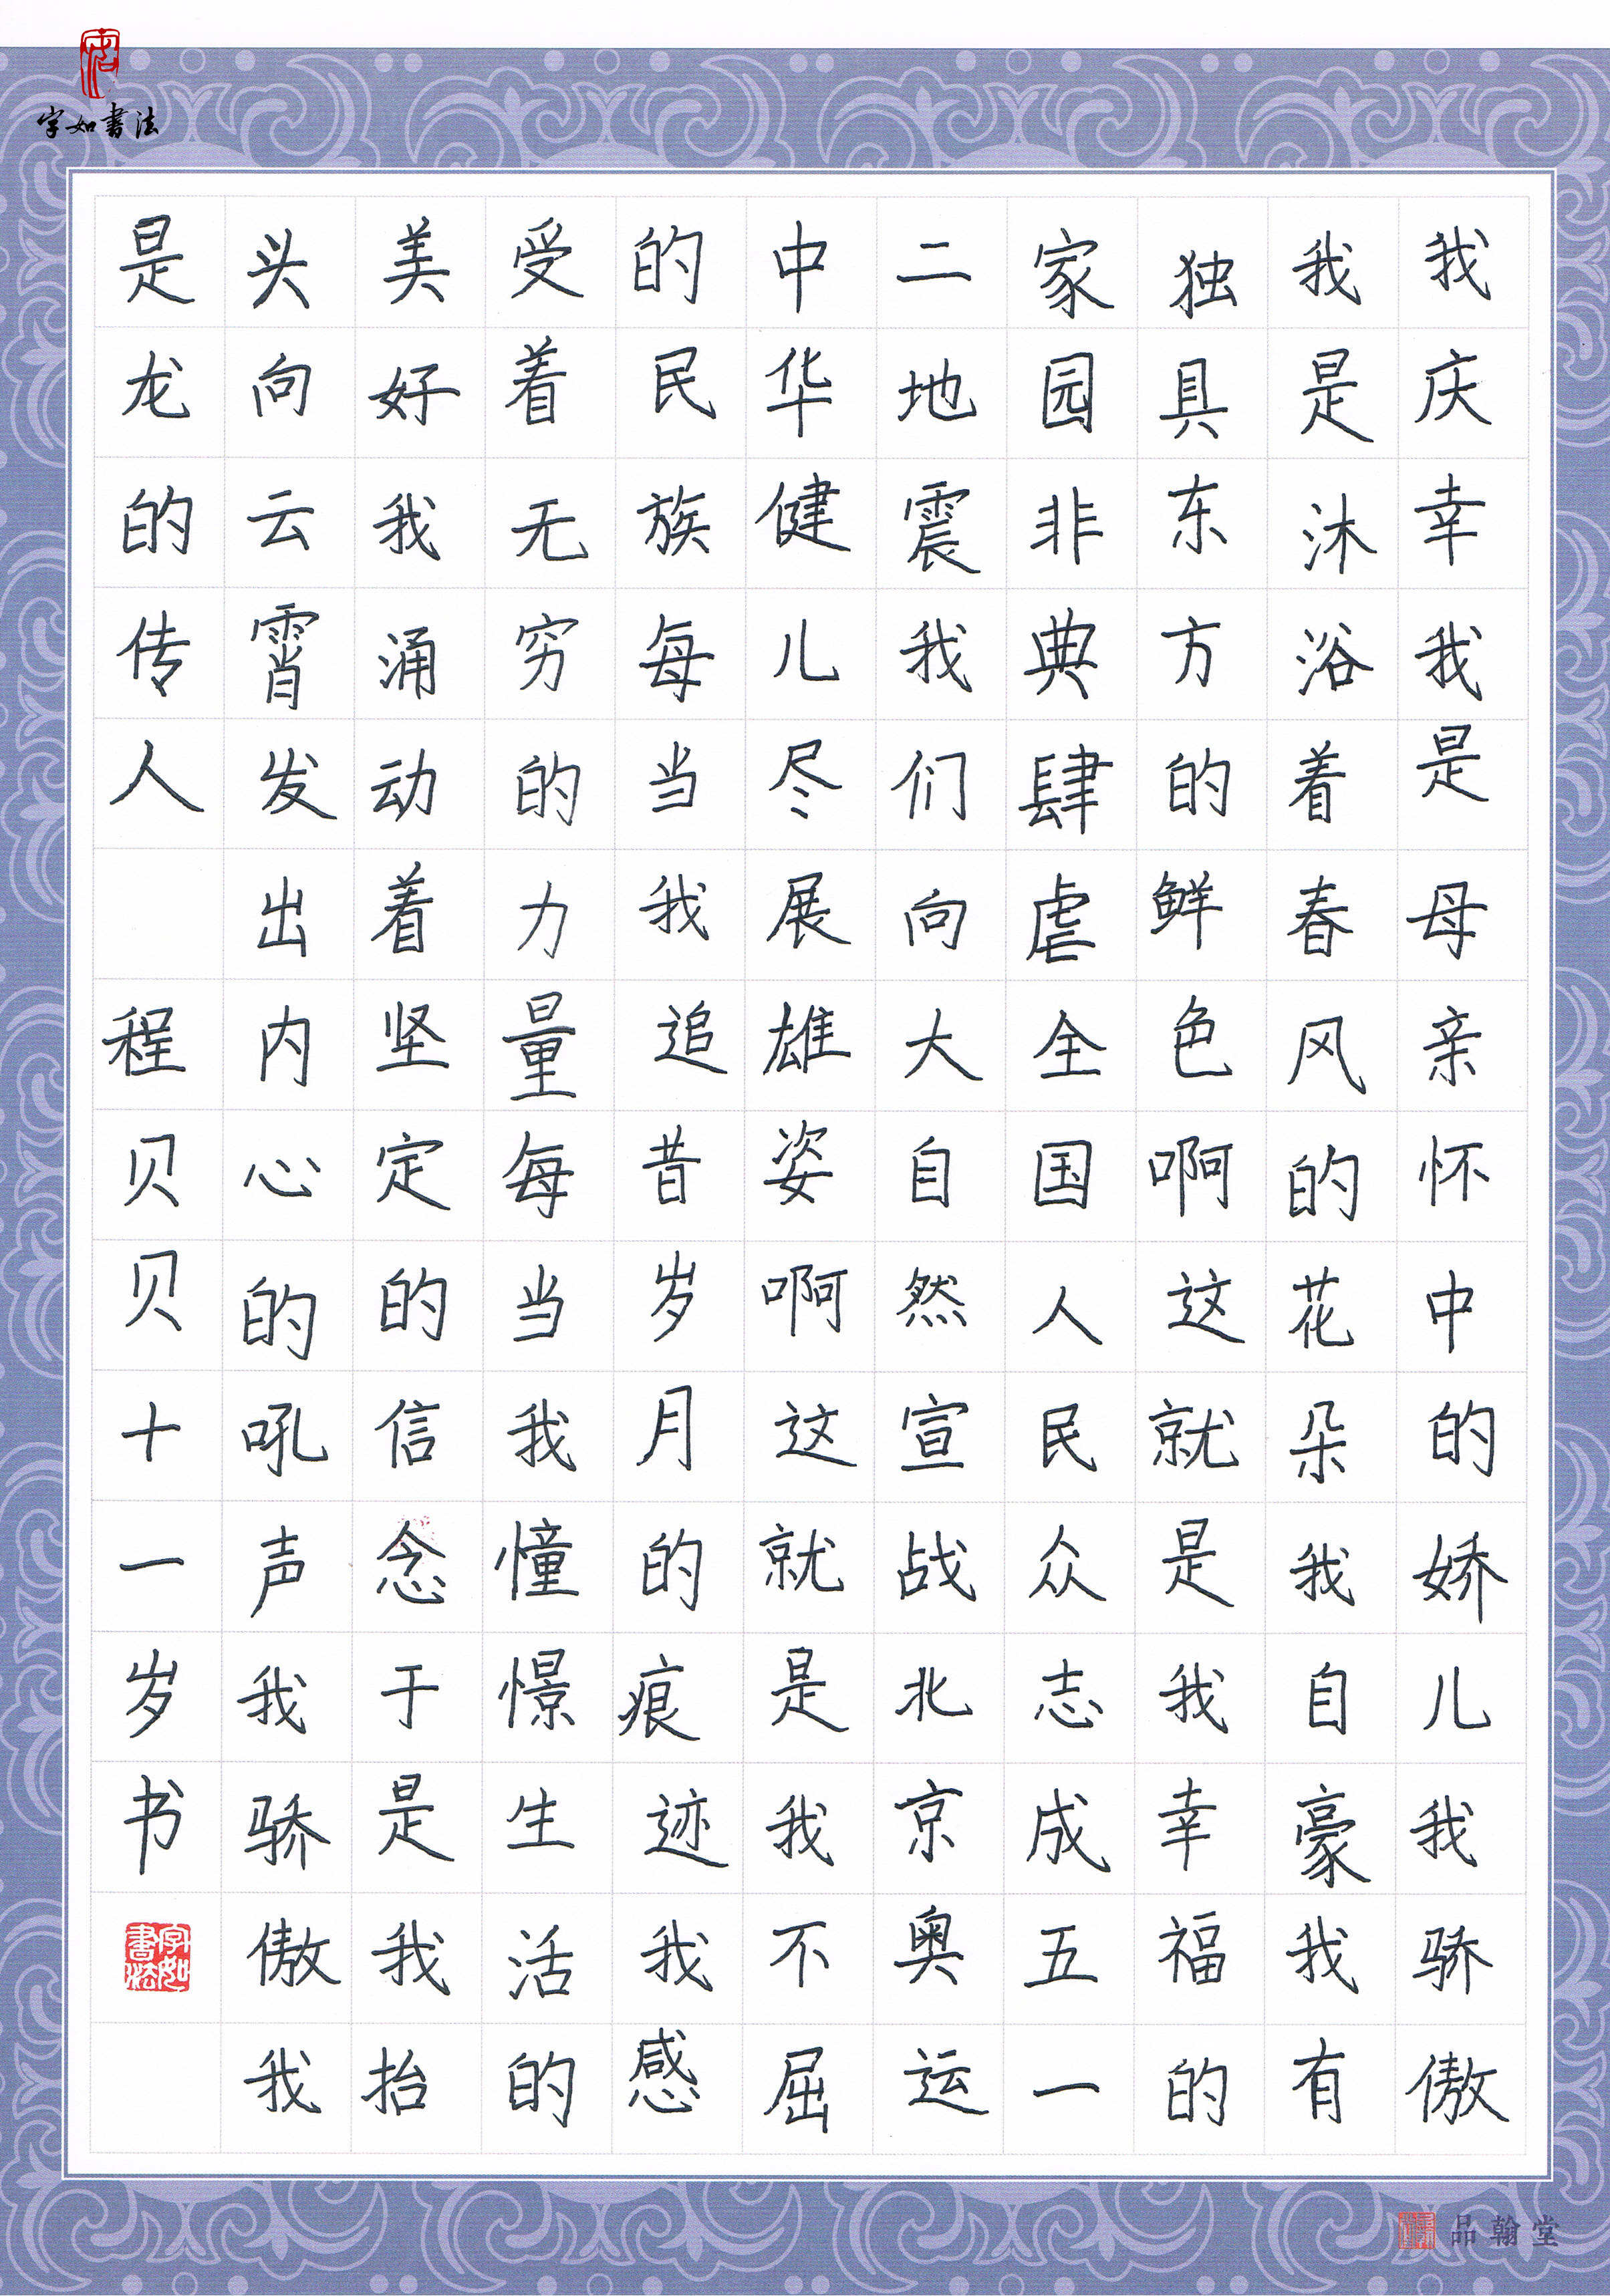 字如書法
我庆幸我是母亲怀中的娇儿我骄傲
我是沐浴着春风的花朵我自豪我有
独具东方的鲜色啊这就是我幸福的
家园非典肆虐全国人民众志成五一
二地震我们向大自然宣战北京奥运
中华健儿尽展雄姿啊这就是我不屈
的民族每当我追昔岁月的痕迹我感
受着无穷的力量每当我憧憬生活的
美好我涌动着坚定的信念于是我抬
头向云霄发出内心的吼声我骄傲我
是龙的传人 程贝贝十一岁书
字如書法
品翰堂